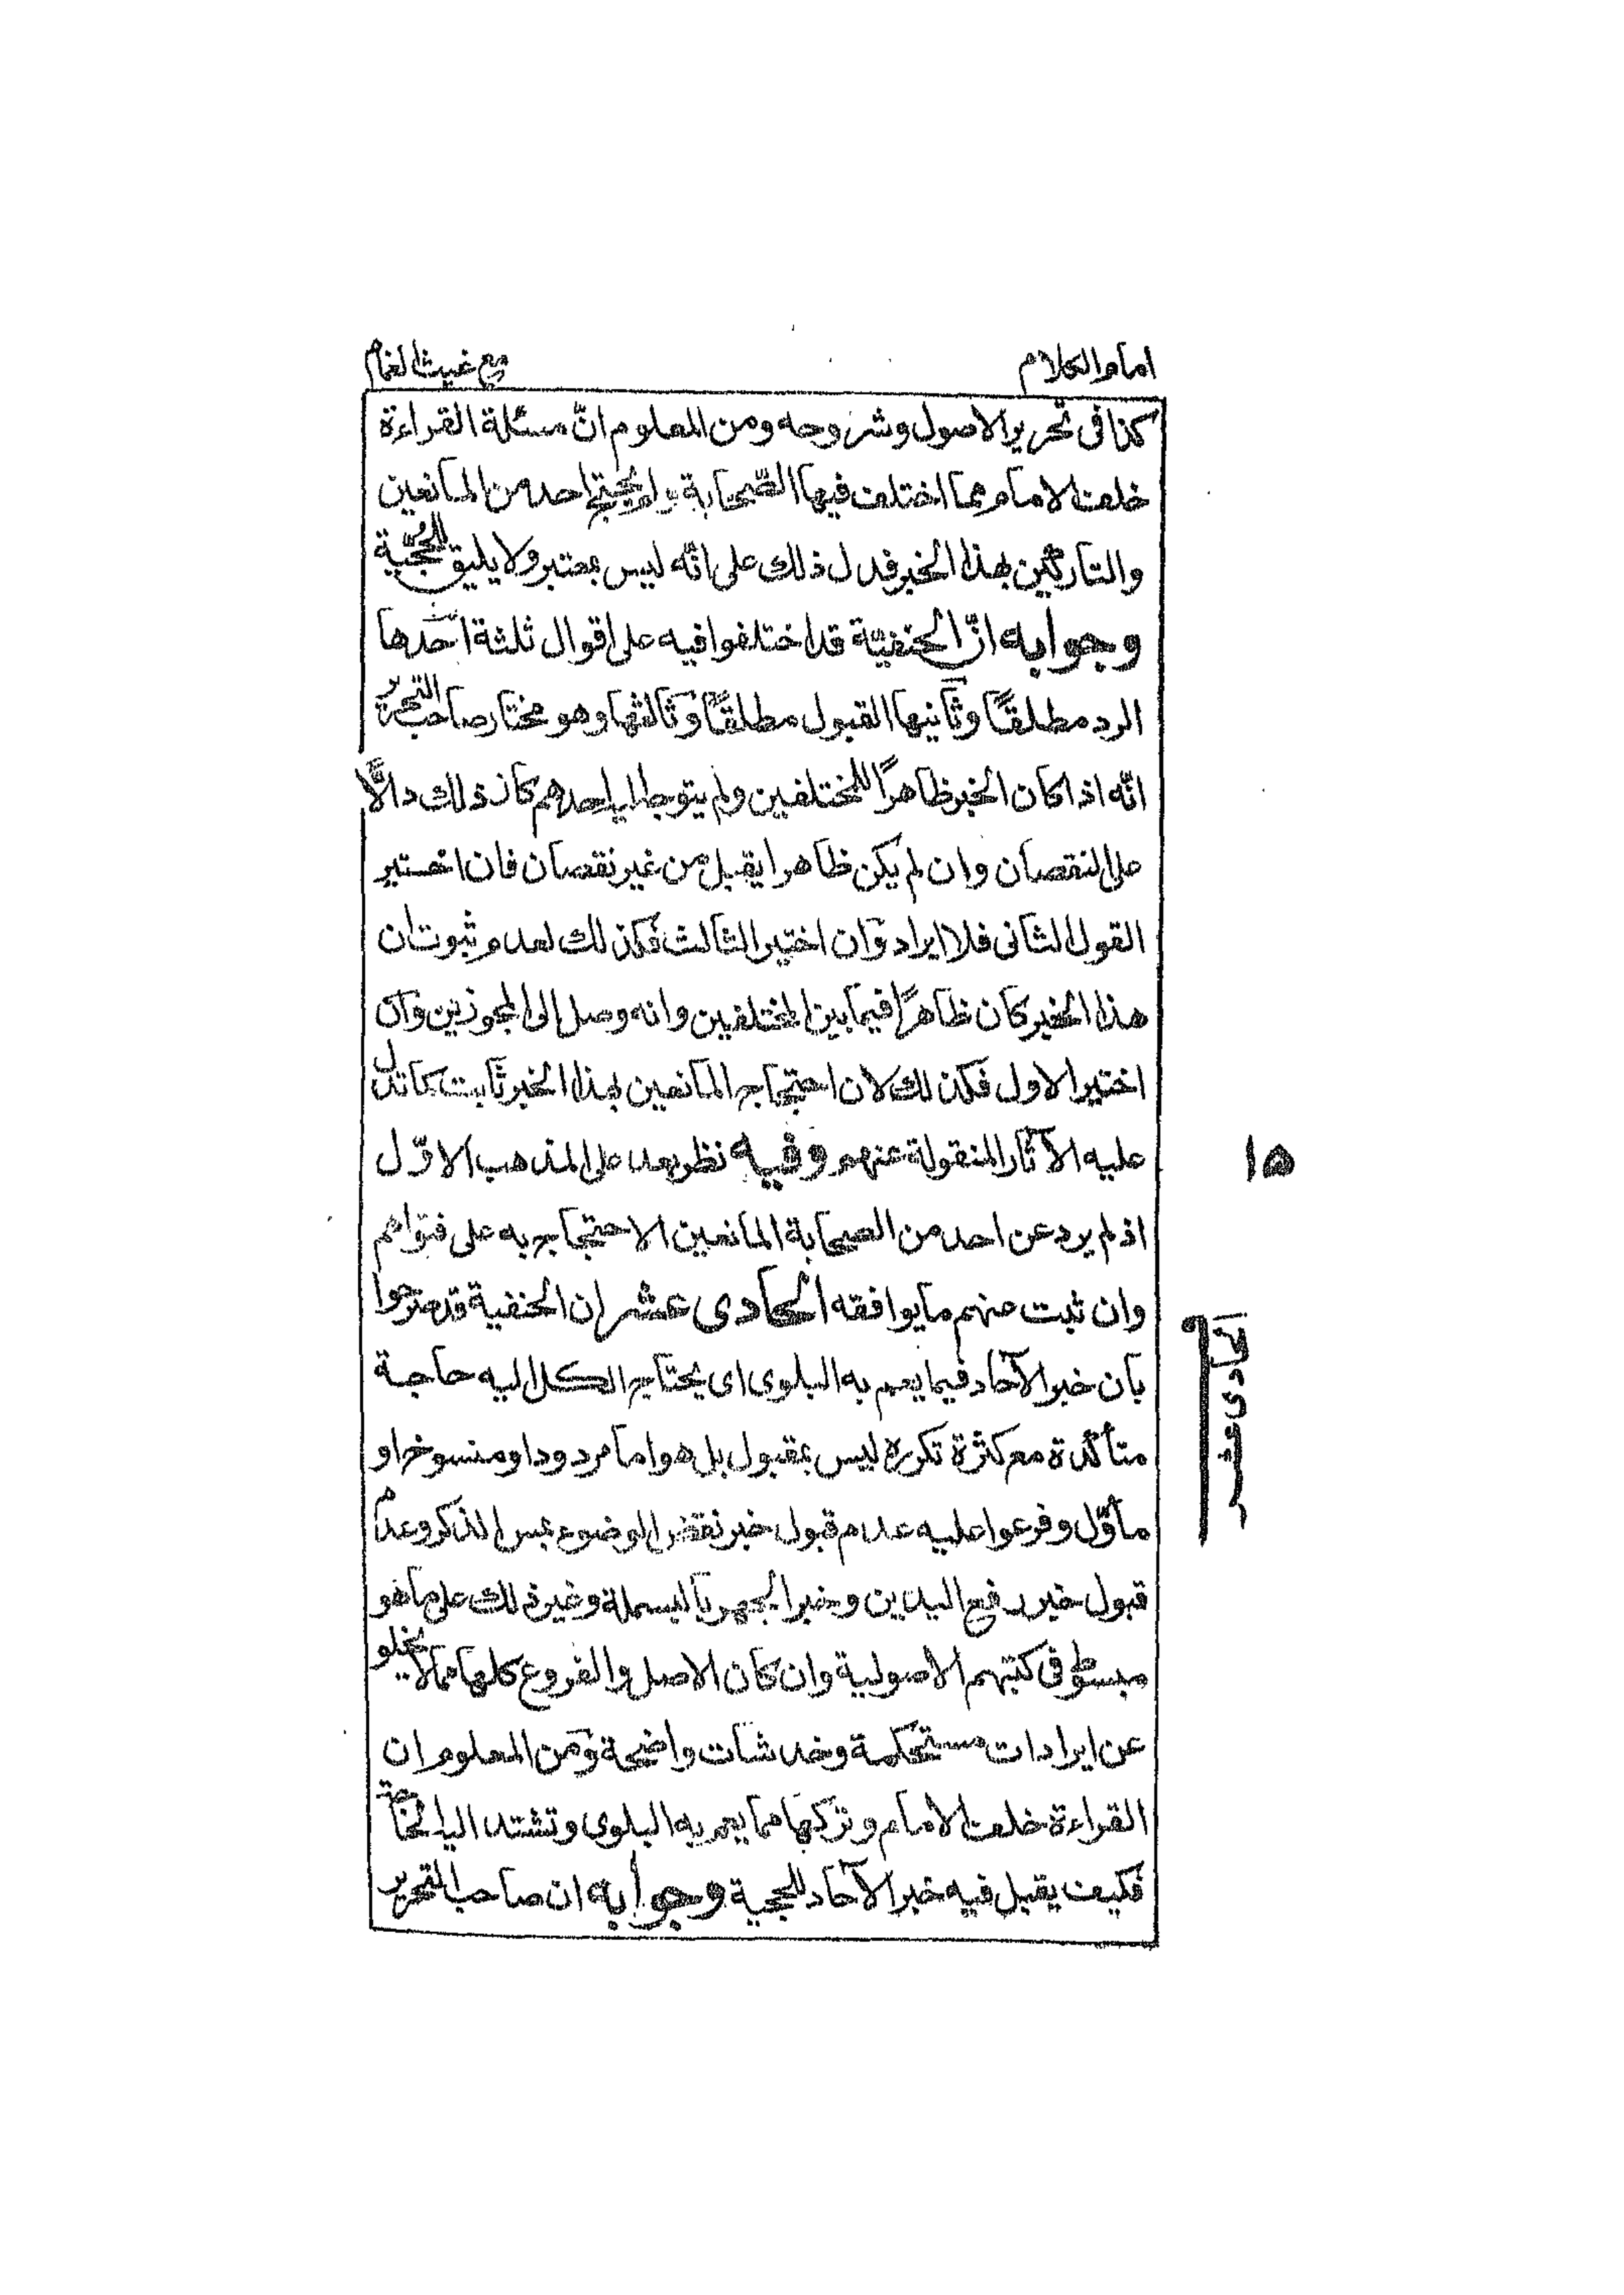 امام الكلام
مع غيث الغمام
كذا فى تحرير الاصول وشروحه ومن المعلوم انّ مسئلة القراءة
خلف الامام مما اختلف فيها الصّحابة ولم يحتج احد من المانعين
والتاركين بهذا الخبر فدل ذلك على انّه ليس بمعتبر ولا يليق للحُجّية
وجوابه انّ الحنفيّة قد اختلفوا فيه على اقوال ثلثة احدها
الرد مطلقًا وثانيها القبول مطلقًا وثالثها وهو مختار صاحب التحرير
انّه اذا كان الخبر ظاهرًا للمختلفين ولم يتوجه اليه احدهم كان ذلك دالًّا
على النقصان وان لم يكن ظاهرا يقبل من غير نقصان فان اختير
القول الثانى فلا ايراد وان اختير الثالث فكذلك لعدم ثبوت ان
هذا الخبر كان ظاهرًا فيما بين المختلفين وانه وصل الى المجوزين وان
اختير الاول فكذلك لان احتجاج المانعين بهذا الخبر ثابت كما تدل
عليه الآثار المنقولة عنهم وفيه نظر بعد على المذهب الاوّل
اذ لم يرد عن احد من الصحابة المانعين الاحتجاج به على فتواهم
وان ثبت منهم ما يوافقه الحادى عشر ان الحنفية قد صرحوا
بان خبر الآحاد فيما يعم به البلوى اى يحتاج الكل اليه حاجة
متأكدة مع كثرة تكرره ليس بمقبول بل هو اما مردود او منسوخ او
مأوّل وفرعوا عليه عدم قبول خبر نقض الوضوء بمس الذكر وعدم
قبول خبر رفع اليدين وخبر الجهر بالبسملة وغير ذلك على ما هو
مبسوط فى كتبهم الاصولية وان كان الاصل والفروع كلها مما لا يخلو
عن ايرادات مستحكمة وخدشات واضحة ومن المعلوم ان
القراءة خلف الامام وتركها مما يعم به البلوى وتشتد اليه الحاجة
فكيف يقبل فيه خبر الآحاد للحجية وجوابه ان صاحب التحرير
١٥
الحادى عشر